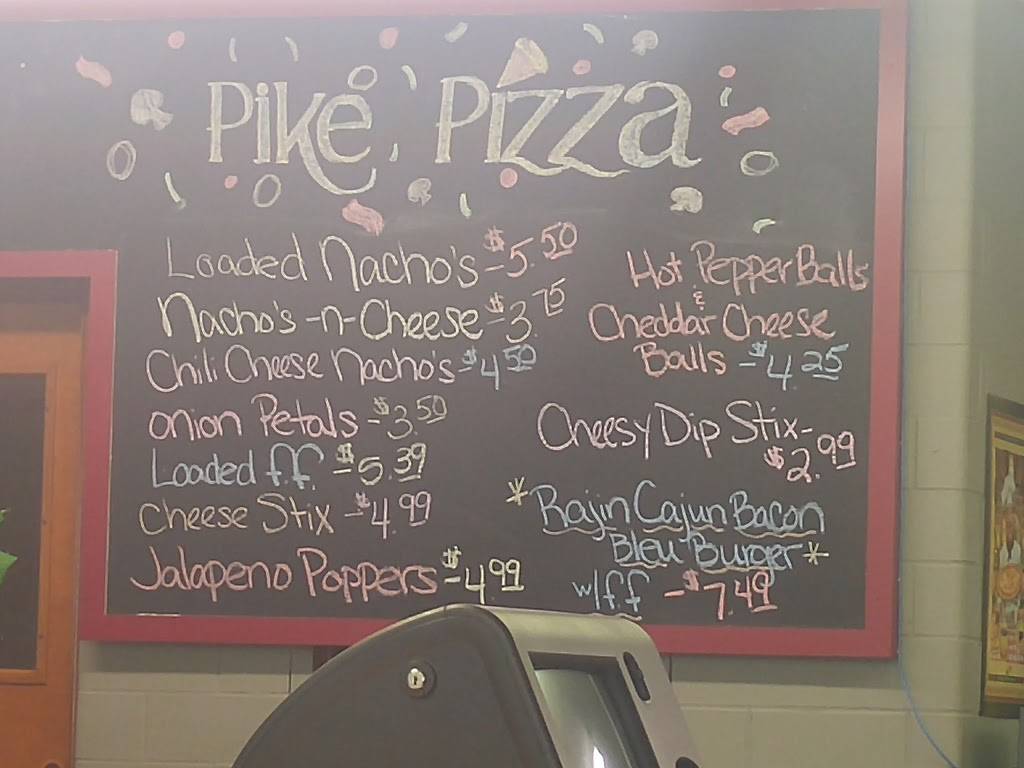 Pike Pizza
Loaded Nacho's - $5.50
Nacho's -n- Cheese - $3.75
Chili Cheese Nacho's - $4.50
Onion Petals - $3.50
Loaded f.f. - $5.39
Cheese Stix - $4.99
Jalapeno Poppers - $4.99
Hot Pepper Balls
&
Cheddar Cheese
Balls - $4.25
Cheesy Dip Stix -
$2.99
*Rajin Cajun Bacon
Bleu Burger*
w/f.f - $7.49